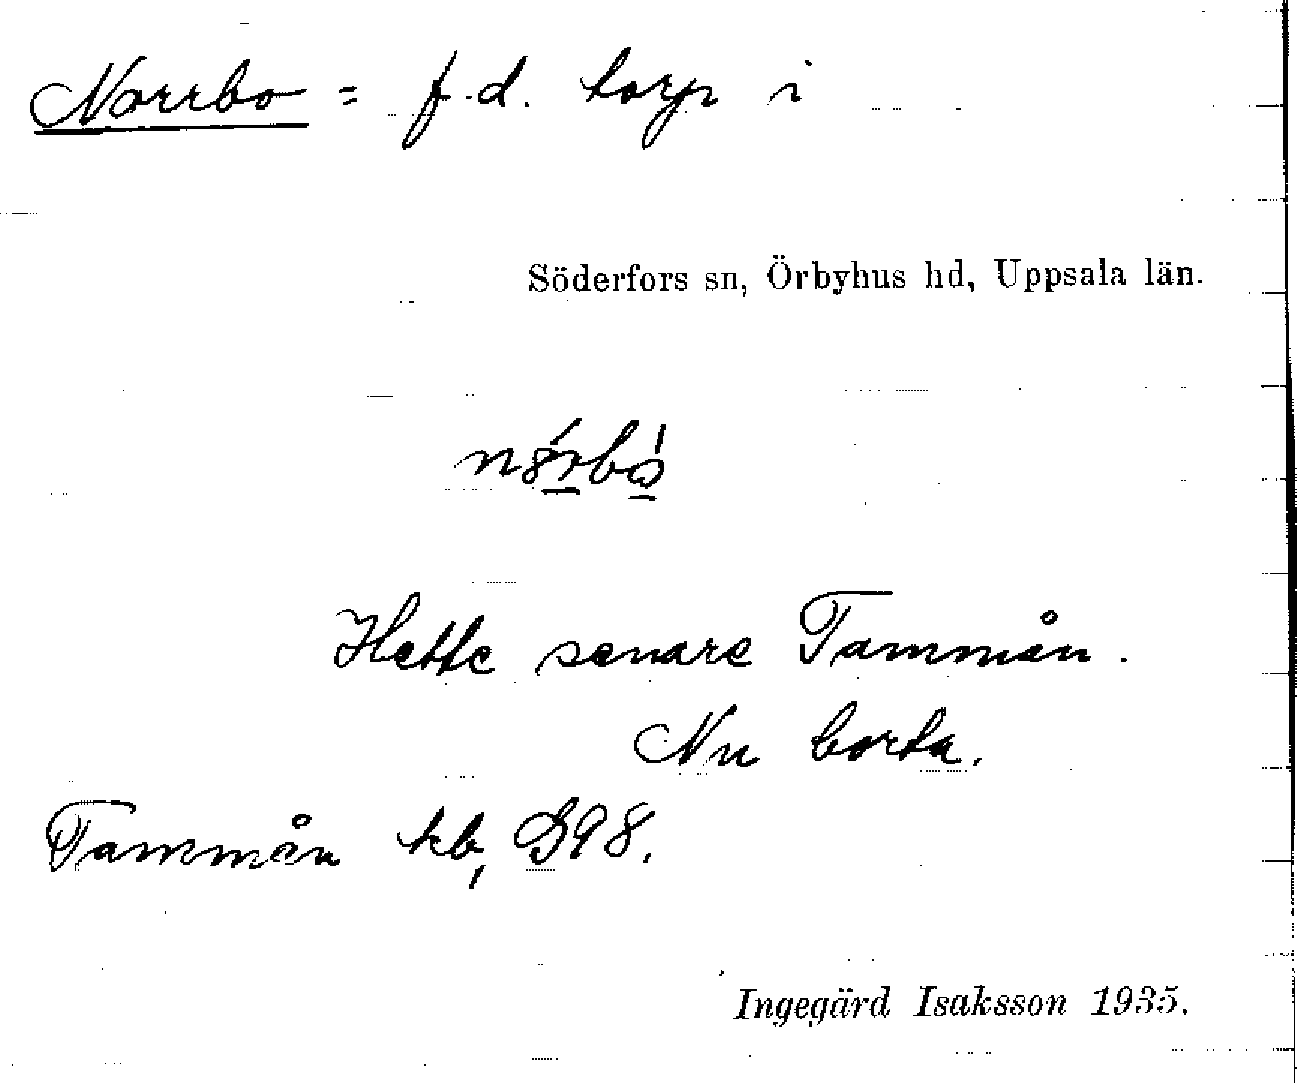 Norrbo = f.d. torp i
Söderfors sn, Örbyhus hd, Uppsala län.
Hette senare Tammån.
Nu borta.
Tammån kb, D98.
Ingegärd Isaksson 1935.